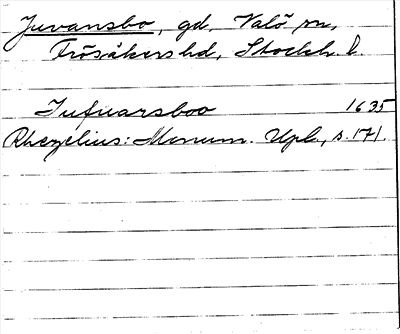 Juvansbo, gd, Valö sn,
Frösåkers hd, Stockh. l.
Jufuarsboo 1635
Rhezelius: Monum. Upl., s. 171.